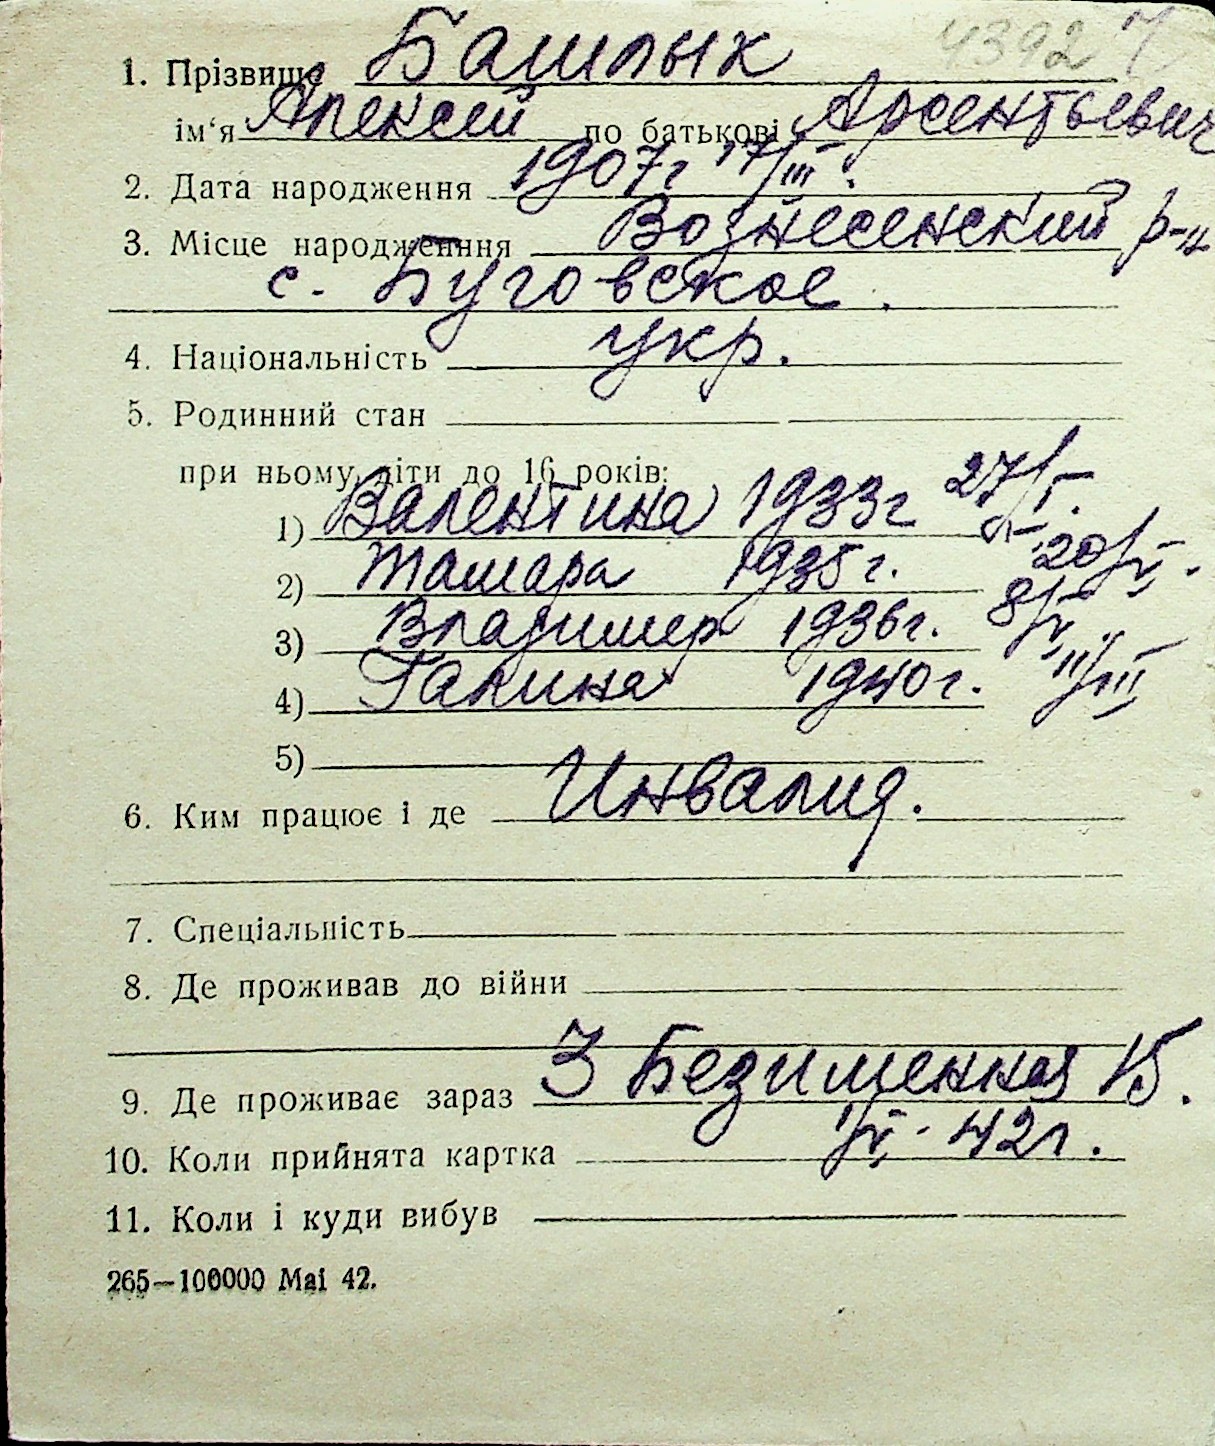 4392 7
1. Прізвище Башлык
ім‘я Алексей по батькові Арсентьевич
2. Дата народження 1907г 17/III.
3. Місце народження Вознесенский р-н
с. Буговское.
4. Національність укр.
5. Родинний стан
при ньому діти до 16 років:
1) Валентина 1933г 27/I.
2) Тамара 1935г. 20/V.
3) Владимир 1936г. 8/V
4) Галина 1940г. 11/III
5)
6. Ким працює і де Инвалид.
7. Спеціальність
8. Де проживав до війни
9. Де проживає зараз 3 Безименная 15.
10. Коли прийнята картка 1/V - 42г.
11. Коли і куди вибув
265—100000 Mai 42.